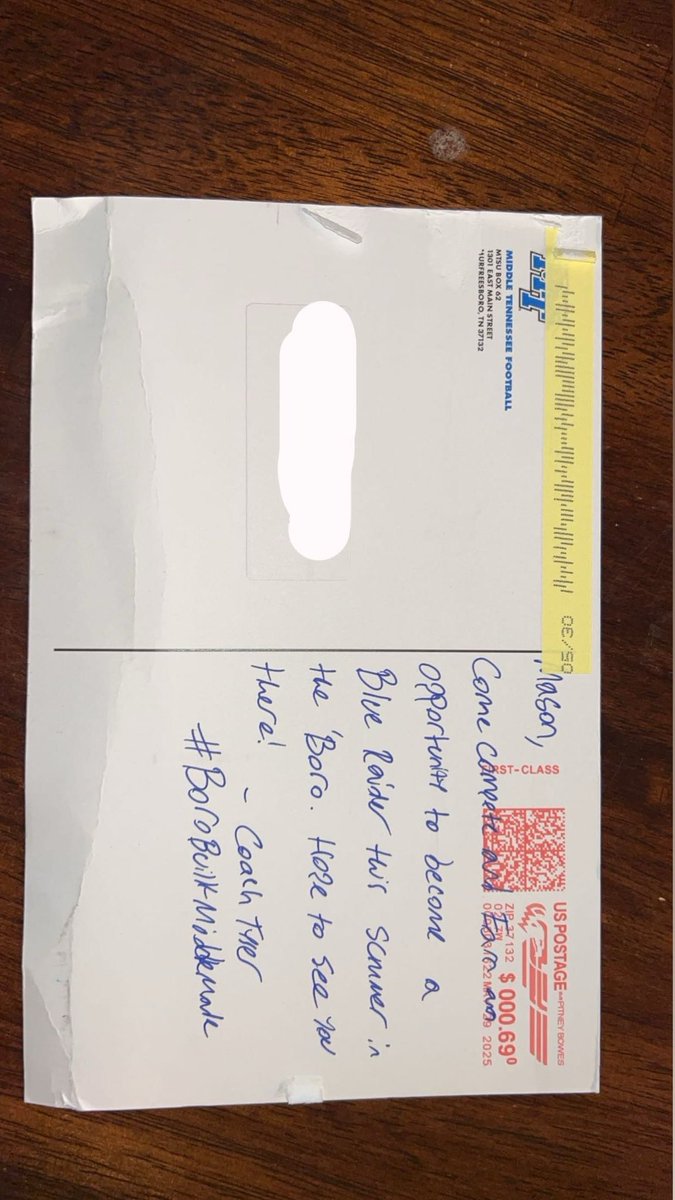 MT
MIDDLE TENNESSEE FOOTBALL
MTSU BOX 62
1301 EAST MAIN STREET
MURFREESBORO, TN 37132
05/30
FIRST-CLASS
US POSTAGE PITNEY BOWES
ZIP 37132
$ 000.69⁰
2025
Mason,
Come compete and Earn an
opportunity to become a
Blue Raider this summer in
the 'Boro. Hope to see you
there!
- Coach Tyner
#BoroBuiltMiddleMade